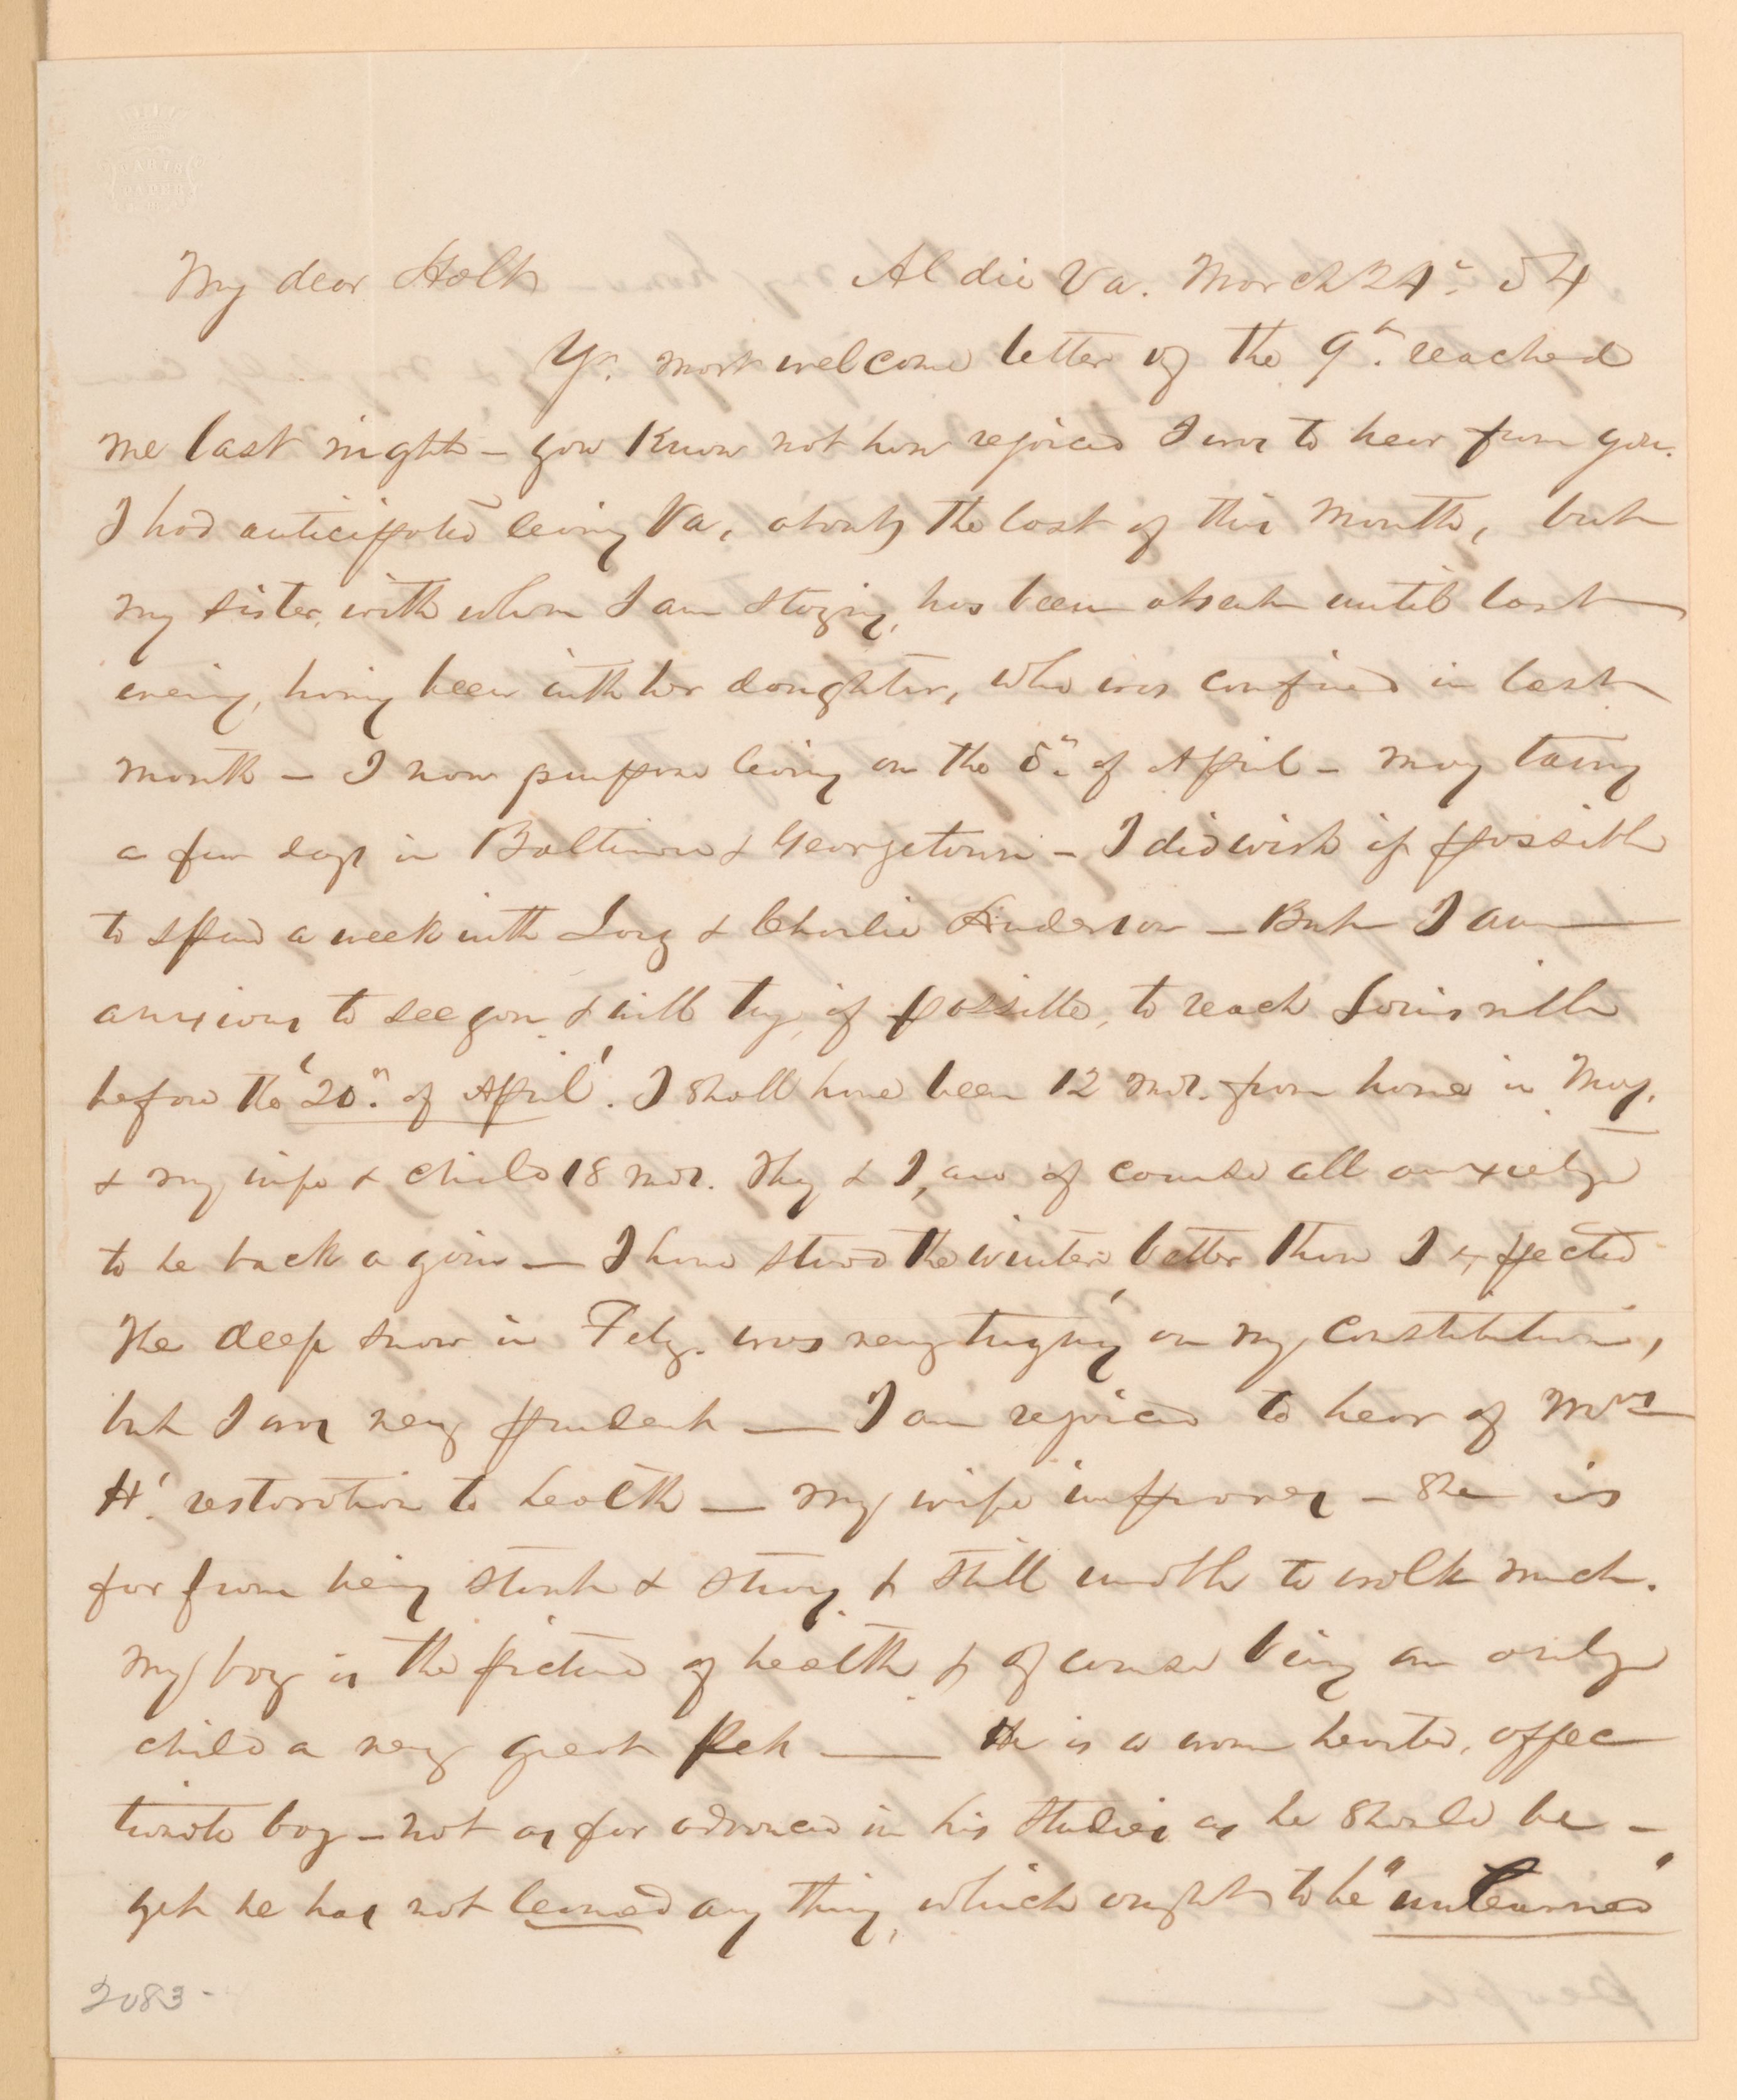 PARIS
PAPER
My dear Holt Aldie Va. March 24th. 54
Yr. most welcome letter of the 9th. reached
me last night – you know not how rejoiced I was to hear from you.
I had anticipated leaving Va, about the last of this month, but
my sister, with whom I am staying, has been absent until last
evening, having been with her daughter, who was confined in last
month – I now purpose leaving on the 5th. of April – may tarry
a few days in Baltimore & Georgetown – I did wish if possible
to spend a week with Larz & Charlie Anderson – But I am
anxious to see you & will try, if possible, to reach Louisville
before the '20th. of April'. I shall have been 12 mos. from home in May,
& my wife & child 18 mos. They & I, are of course all anxiety
to be back again – I have stood the winter better than I expected
The deep snow in Feby. was very trying on my constitution,
but I was very prudent — I am rejoiced to hear of Mrs
H'. restoration to health — My wife improves – She is
far from being stout & strong & still unable to walk much.
My boy is the picture of health & of course being an only
child a very great Pet — He is a warm hearted, affec
tionate boy – not as far advanced in his studies as he should be –
yet he has not learned any thing, which ought to be "unlearned"
2083-